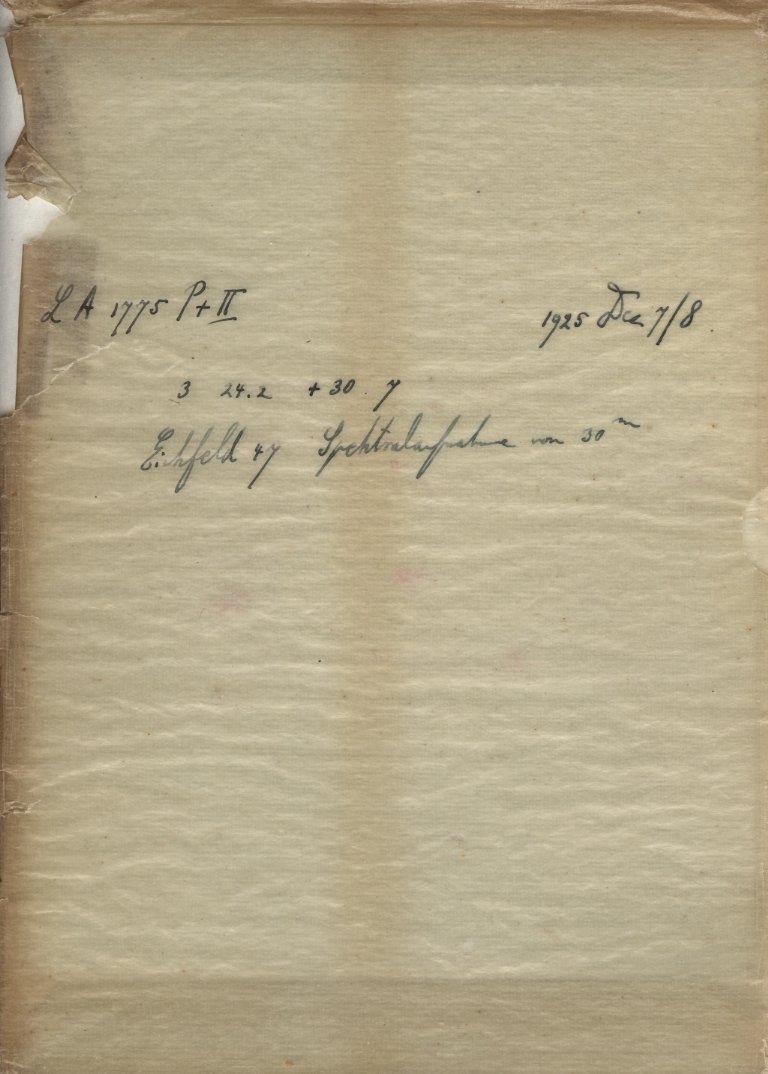 LA 1775 P+II 1925 Dez 7/8
3 24.2 +30.7
Eichfeld 47 Spektralaufnahme von 30ᵐ